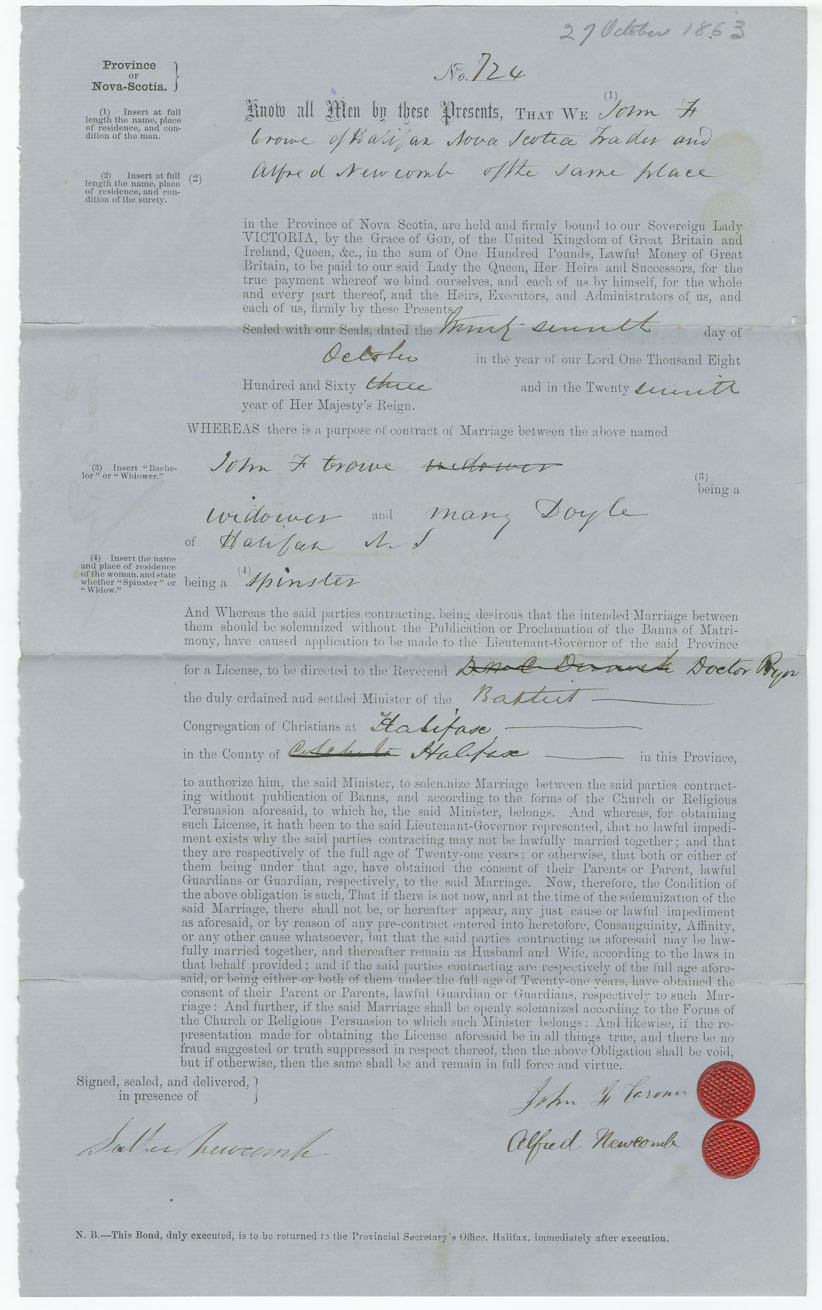 27 October 1863
Province
OF
Nova-Scotia.
No. 724
(1) Insert at full
length the name, place
of residence, and con-
dition of the man.
Know all Men by these Presents, THAT WE (1) John F
Crowe of Halifax Nova Scotia Trader and
(2) Insert at full
length the name, place
of residence, and con-
dition of the surety.
(2) Alfred Newcomb of the same place
in the Province of Nova Scotia, are held and firmly bound to our Sovereign Lady
VICTORIA, by the Grace of GOD, of the United Kingdom of Great Britain and
Ireland, Queen, &c., in the sum of One Hundred Pounds, Lawful Money of Great
Britain, to be paid to our said Lady the Queen, Her Heirs and Successors, for the
true payment whereof we bind ourselves, and each of us by himself, for the whole
and every part thereof, and the Heirs, Executors, and Administrators of us, and
each of us, firmly by these Presents.
Sealed with our Seals, dated the day of
October in the year of our Lord One Thousand Eight
Hundred and Sixty three and in the Twenty
year of Her Majesty's Reign.
WHEREAS there is a purpose of contract of Marriage between the above named
(3) Insert "Bache-
lor" or "Widower."
John F Crowe widower
(3)
being a
widower and Mary Doyle
of Halifax N. S
(4) Insert the name
and place of residence
of the woman, and state
whether "Spinster" or
"Widow."
being a (4) Spinster
And Whereas the said parties contracting, being desirous that the intended Marriage between
them should be solemnized without the Publication or Proclamation of the Banns of Matri-
mony, have caused application to be made to the Lieutenant-Governor of the said Province
for a License, to be directed to the Reverend Doctor
the duly ordained and settled Minister of the Baptist
Congregation of Christians at Halifax,
in the County of Halifax in this Province,
to authorize him, the said Minister, to solemnize Marriage between the said parties contract-
ing without publication of Banns, and according to the forms of the Church or Religious
Persuasion aforesaid, to which he, the said Minister, belongs. And whereas, for obtaining
such License, it hath been to the said Lieutenant-Governor represented, that no lawful impedi-
ment exists why the said parties contracting may not be lawfully married together; and that
they are respectively of the full age of Twenty-one years; or otherwise, that both or either of
them being under that age, have obtained the consent of their Parents or Parent, lawful
Guardians or Guardian, respectively, to the said Marriage. Now, therefore, the Condition of
the above obligation is such, That if there is not now, and at the time of the solemnization of the
said Marriage, there shall not be, or hereafter appear, any just cause or lawful impediment
as aforesaid, or by reason of any pre-contract entered into heretofore, Consanguinity, Affinity,
or any other cause whatsoever, but that the said parties contracting as aforesaid may be law-
fully married together, and thereafter remain as Husband and Wife, according to the laws in
that behalf provided; and if the said parties contracting are respectively of the full age afore-
said, or being either or both of them under the full age of Twenty-one years, have obtained the
consent of their Parent or Parents, lawful Guardian or Guardians, respectively to such Mar-
riage: And further, if the said Marriage shall be openly solemnized according to the Forms of
the Church or Religious Persuasion to which such Minister belongs: And likewise, if the re-
presentation made for obtaining the License aforesaid be in all things true, and there be no
fraud suggested or truth suppressed in respect thereof, then the above Obligation shall be void,
but if otherwise, then the same shall be and remain in full force and virtue.
Signed, sealed, and delivered,
in presence of
John F
Newcomb
Alfred Newcomb
N. B.—This Bond, duly executed, is to be returned to the Provincial Secretary's Office, Halifax, immediately after execution.